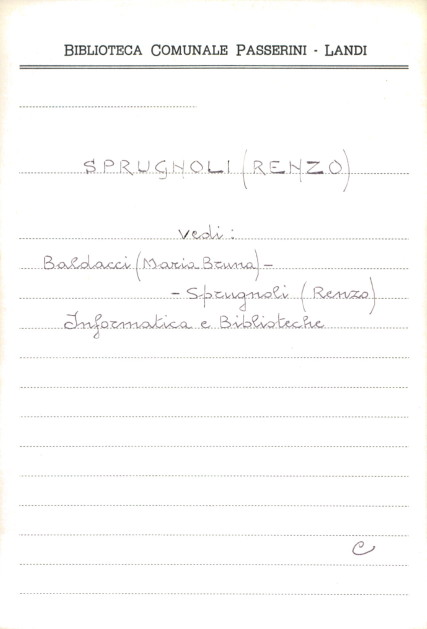 BIBLIOTECA COMUNALE PASSERINI - LANDI
SPRUGNOLI (RENZO)
Vedi:
Baldacci (Maria Bruna) -
- Sprugnoli (Renzo)
Informatica e Biblioteche
C